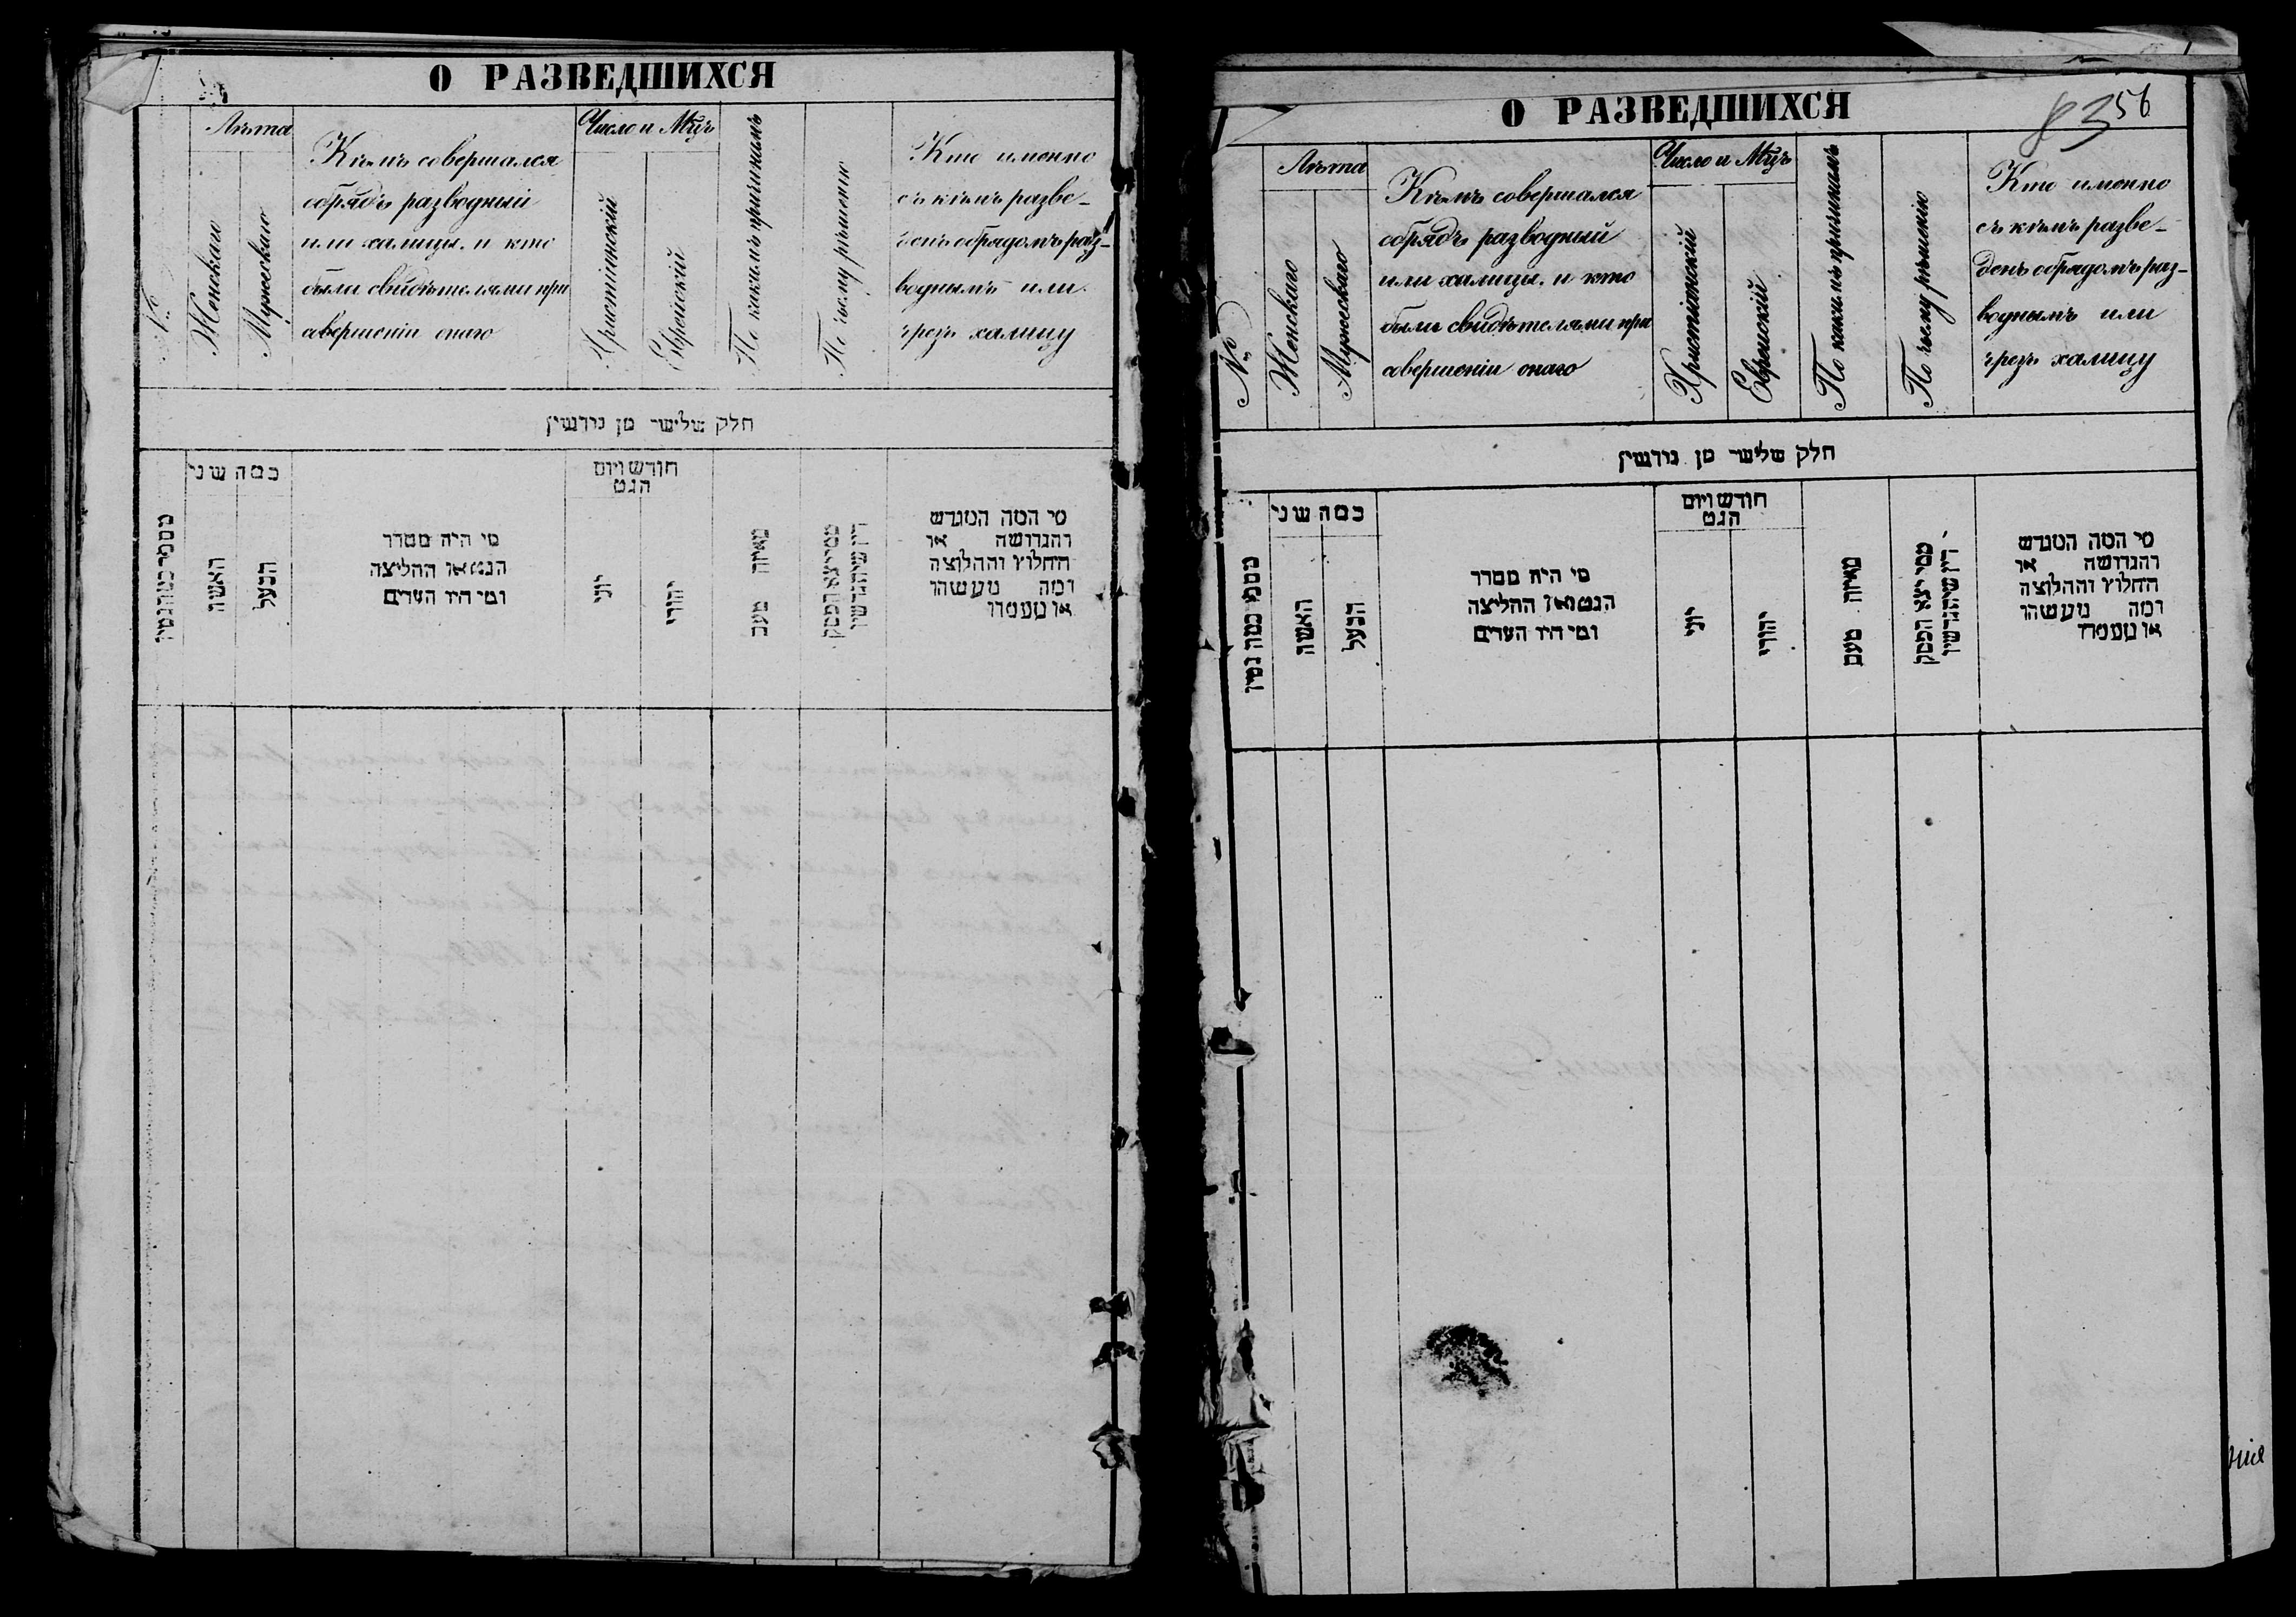 О РАЗВЕДШИХСЯ
№
Лѣта
Женскаго
Мужескаго
Кѣмъ совершался
обрядъ разводный
или халицы, и кто
были свидѣтелями при
совершеніи онаго
Число и Мцъ
Христіянскій
Еврейскій
По какимъ причинамъ
По чьему рѣшенію
Кто именно
съ кѣмъ разве-
денъ обрядомъ раз-
воднымъ или
чрезъ халицу
חלק שלישי מן גירושין
כמה שני
האשה
הבעל
מי היה מסדר
הגט או החליצה
ומי היו העדים
חודש ויום
הגט
יוני
יהודי
מאיזה טעם
ממי יצא הפסק
דין שיתגרשו
מי המה המגרש
והגרושה או
החלוץ והחלוצה
ומה מעשהו
או מעמדו
О РАЗВЕДШИХСЯ
83 56
№
Лѣта
Женскаго
Мужескаго
Кѣмъ совершался
обрядъ разводный
или халицы, и кто
были свидѣтелями при
совершеніи онаго
Число и Мцъ
Христіянскій
Еврейскій
По какимъ причинамъ
По чьему рѣшенію
Кто именно
съ кѣмъ разве-
денъ обрядомъ раз-
воднымъ или
чрезъ халицу
חלק שלישי מן גירושין
כמה שני
האשה
הבעל
מי היה מסדר
הגט או החליצה
ומי היו העדים
חודש ויום
הגט
יוני
יהודי
מאיזה טעם
ממי יצא הפסק
דין שיתגרשו
מי המה המגרש
והגרושה או
החלוץ והחלוצה
ומה מעשהו
או מעמדו
нія